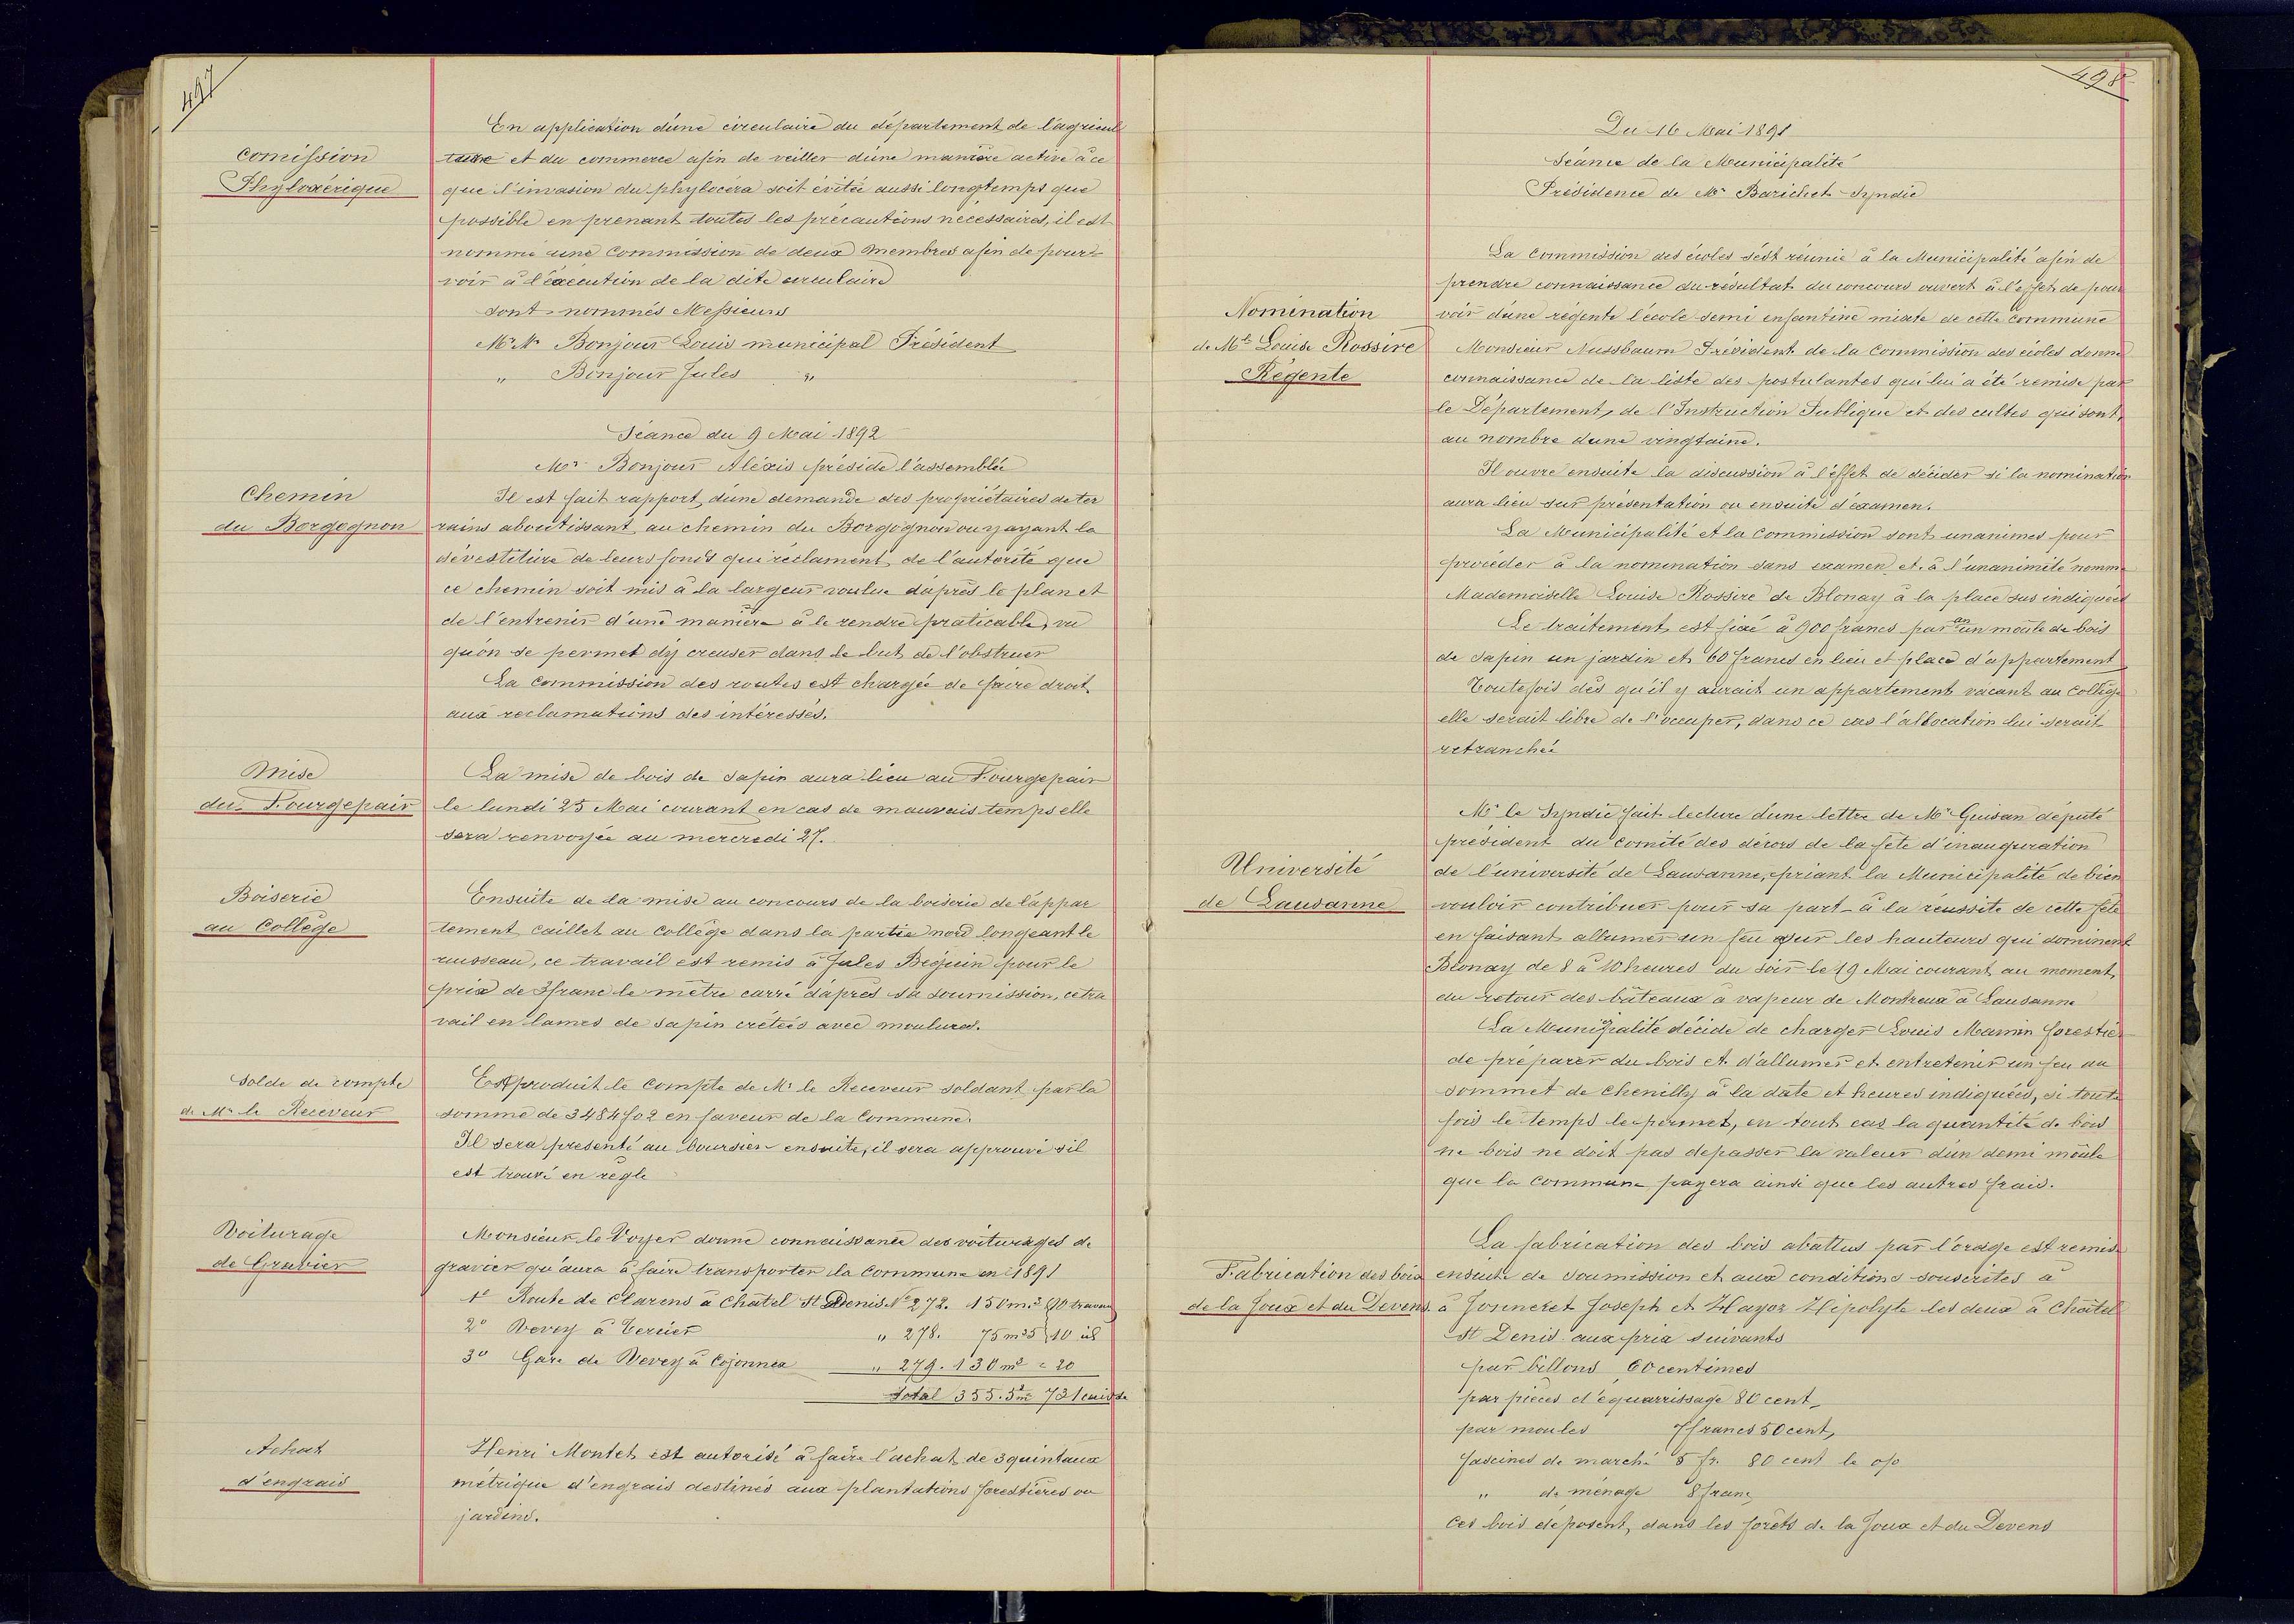 497
En application d'une circulaire du département de l'agricul
Comission
ture et du commerce afin de veiller d'une manière active à ce
Phyloxérique
que l'invasion du phyloxéra soit évitée aussi longtemps que
possible en prenant toutes les précautions nécessaires, il est
nommé une Commission de deux membres afin de pour
voir à l'éxécution de la dite circulaire
sont nommés Messieurs
Mr. Mr Bonjour Louis municipal Président
" Bonjour Jules "
Séance du 9 Mai 1892
Mr. Bonjour Aléxis préside l'assemblée
Chemin
Il est fait rapport d'une demande des propriétaires de ter
du Borgognon
rains aboutissant au chemin du Borgognon ou y ayant la
dévestiture de leurs fonds qui réclament de l'autorité que
ce chemin soit mis à la largeur voulue d'après le plan et
de l'entrenir d'une manière à le rendre praticable, vu
qu'on se permet d'y creuser dans le but de l'obstruer
La Commission des routes est chargée de faire droit
aux reclamations des intéressés.
Mise
La mise de bois de sapin aura lieu au Fourgepair
du Fourgepair
le lundi 25 Mai courant en cas de mauvais temps elle
sera renvoyée au mercredi 27.
Boiserie
Ensuite de la mise au concours de la boiserie de l'appar
au Collège
tement caillet au collège dans la partie nord longeant le
ruisseau, ce travail est remis à Jules Béguin pour le
prix de 3 franc le mètre carré d'après sa soumission, ce tra
vail en lames de sapin crêtées avec moulures.
Solde de compte
Est produit le compte de Mr le Receveur soldant par la
de Mr le Receveur
somme de 3484 f 02 en faveur de la Commune.
Il sera présenté au boursier ensuite, il sera approuvé s'il
est trouvé en règle
Voiturage
Monsieur le Voyer donne connaissance des voiturages de
de Gravier
gravier qu'aura à faire transporter la Commune en 1891
1° Route de Clarens à Châtel St Denis No 272. 150 m.3
2° Vevey à Tercier " 278. 75 m3 5 10 id
3° Gare de Vevey à Cojonnex " 279. 130 m3 = 20
Total 355.5 m3
Achat
Henri Montet est autorisé à faire l'achat de 3 quintaux
d'engrais
métrique d'engrais destinés aux plantations forestières ou
jardins.
498
Du 16 Mai 1891
Séance de la Municipalité
Présidence de Mr Barichet Syndic
La Commission des écoles s'est réunie à la Municipalité afin de
prendre connaissance du résultat du concours ouvert à l'effet de pour
Nomination
voir d'une régente l'école semi enfantine mixte de cette commune
de Mlle Louise Rossire
Monsieur Nussbaum Président de la Commission des écoles donne
Régente
connaissance de la liste des postulantes qui lui a été remise par
le Département, de l'Instruction Publique et des cultes qui sont,
au nombre d'une vingtaine.
Il ouvre ensuite la discussion à l'effet de décider si la nomination
aura lieu sur présentation ou ensuite d'éxamen.
La Municipalité et la Commission sont unanimes pour
procéder à la nomination sans examen et à l'unanimité nomme
Mademoiselle Louise Rossire de Blonay à la place sus indiquée
Le traitement est fixé à 900 francs par an un moule de bois
de sapin un jardin et 60 francs en lieu et place d'appartement
Toutefois dès qu'il y aurait un appartement vacant au Collège
elle serait libre de l'occuper, dans ce cas l'allocation lui serait
retranchée
Mr le Syndic fait lecture d'une lettre de Mr Guisan député
président du comité des décors de la fête d'inauguration
Université
de l'université de Lausanne, priant la Municipalité de bien
de Lausanne
vouloir contribuer pour sa part à la réussite de cette fête
en faisant allumer un feu sur les hauteurs qui dominent
Blonay de 8 à 10 heures du soir le 19 Mai courant au moment,
du retour des bâteaux à vapeur de Montreux à Lausanne
La Municipalité décide de charger Louis Mamin forestier
de préparer du bois et d'allumer et entretenir un feu au
sommet de Chenilly à la date et heures indiquées, si toute
fois le temps le permet, en tout cas la quantité de bois
ne bois ne doit pas depasser la valeur d'un demi moûle
que la commune payera ainsi que les autres frais.
La fabrication des bois abattus par l'orage est remise
Fabrication des bois
ensuite de soumission et aux conditions souscrites à
de la Joux et du Devens
à Jonneret Joseph et Hayoz Hipolyte les deux à Châtel
St Denis aux prix suivants
par billons 60 centimes
par pièces d'équarrissage 80 cent
par moules 7 francs 50 cent,
fascines de marché 5 fr. 80 cent le o/o
" de ménage 8 franc
Ces bois déposent, dans les forêts de la Joux et du Devens